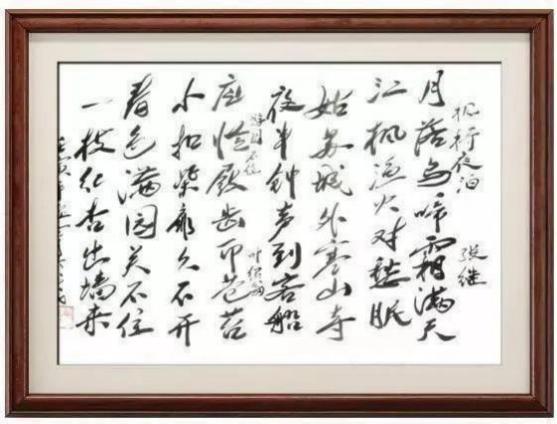 枫桥夜泊
张继
月落乌啼霜满天
江枫渔火对愁眠
姑苏城外寒山寺
夜半钟声到客船
游园不值
叶绍翁
应怜屐齿印苍苔
小扣柴扉久不开
春色满园关不住
一枝红杏出墙来